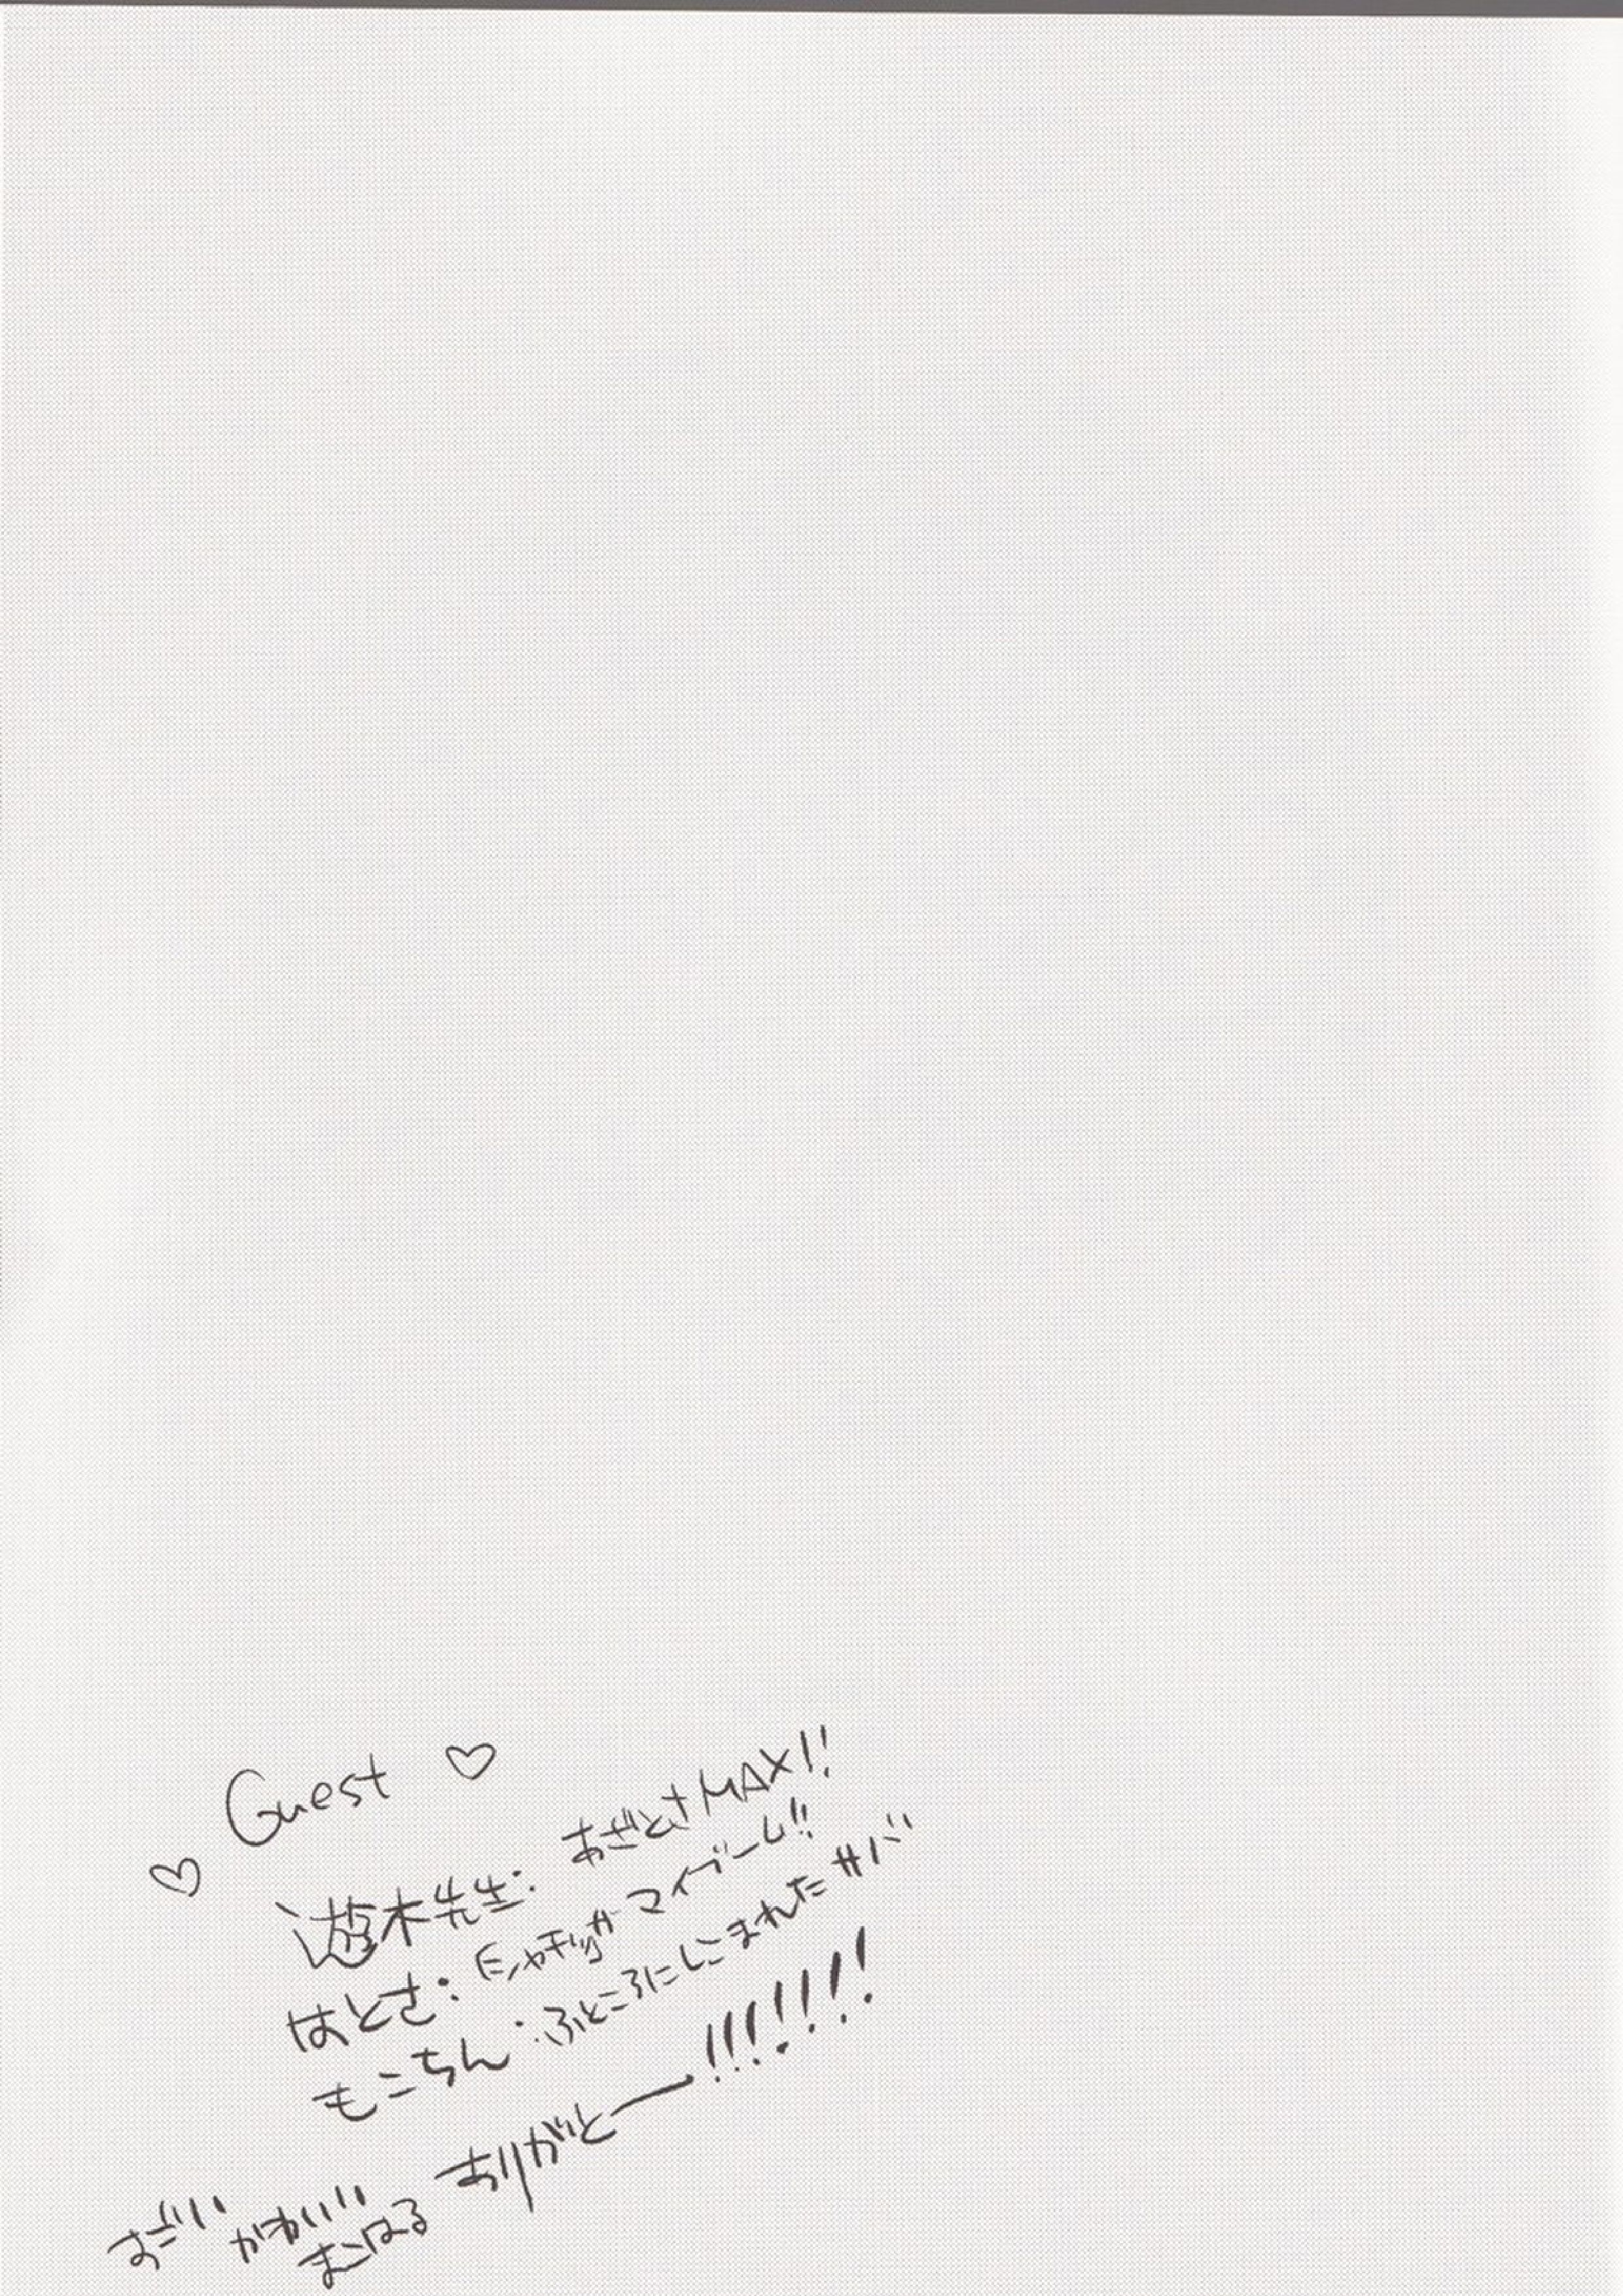 ♡ Guest ♡
遊木先生: あざとさMAX!!
はとさ: シャチッがマイブーム!!
もこちん: ふところにしこまれたサバ
すごい かわいい まこはる ありがとー!!!!!!!